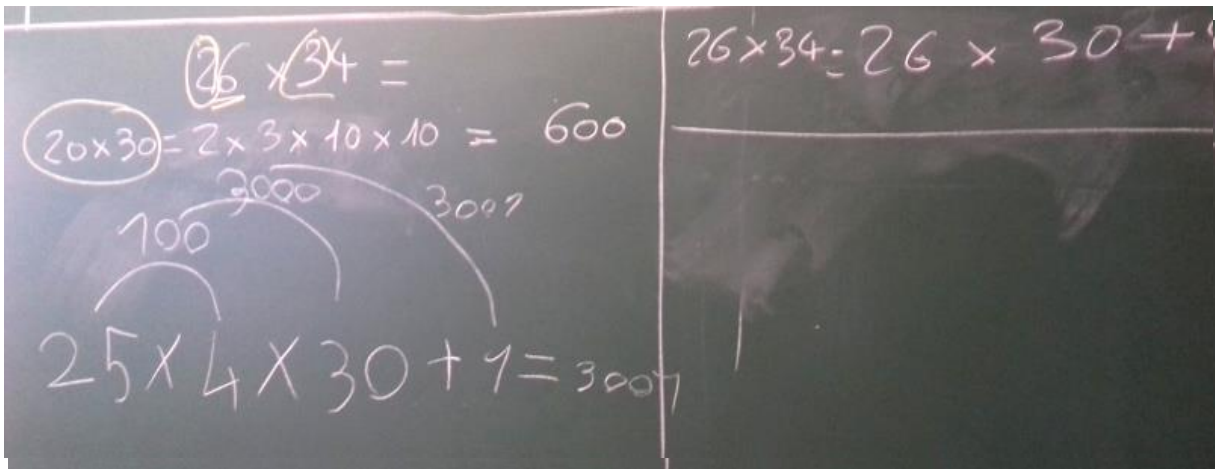 26 × 34 =
20×30 = 2 × 3 × 10 × 10 = 600
3000
3001
100
25 × 4 × 30 + 1 = 3001
26 × 34 = 26 × 30 +